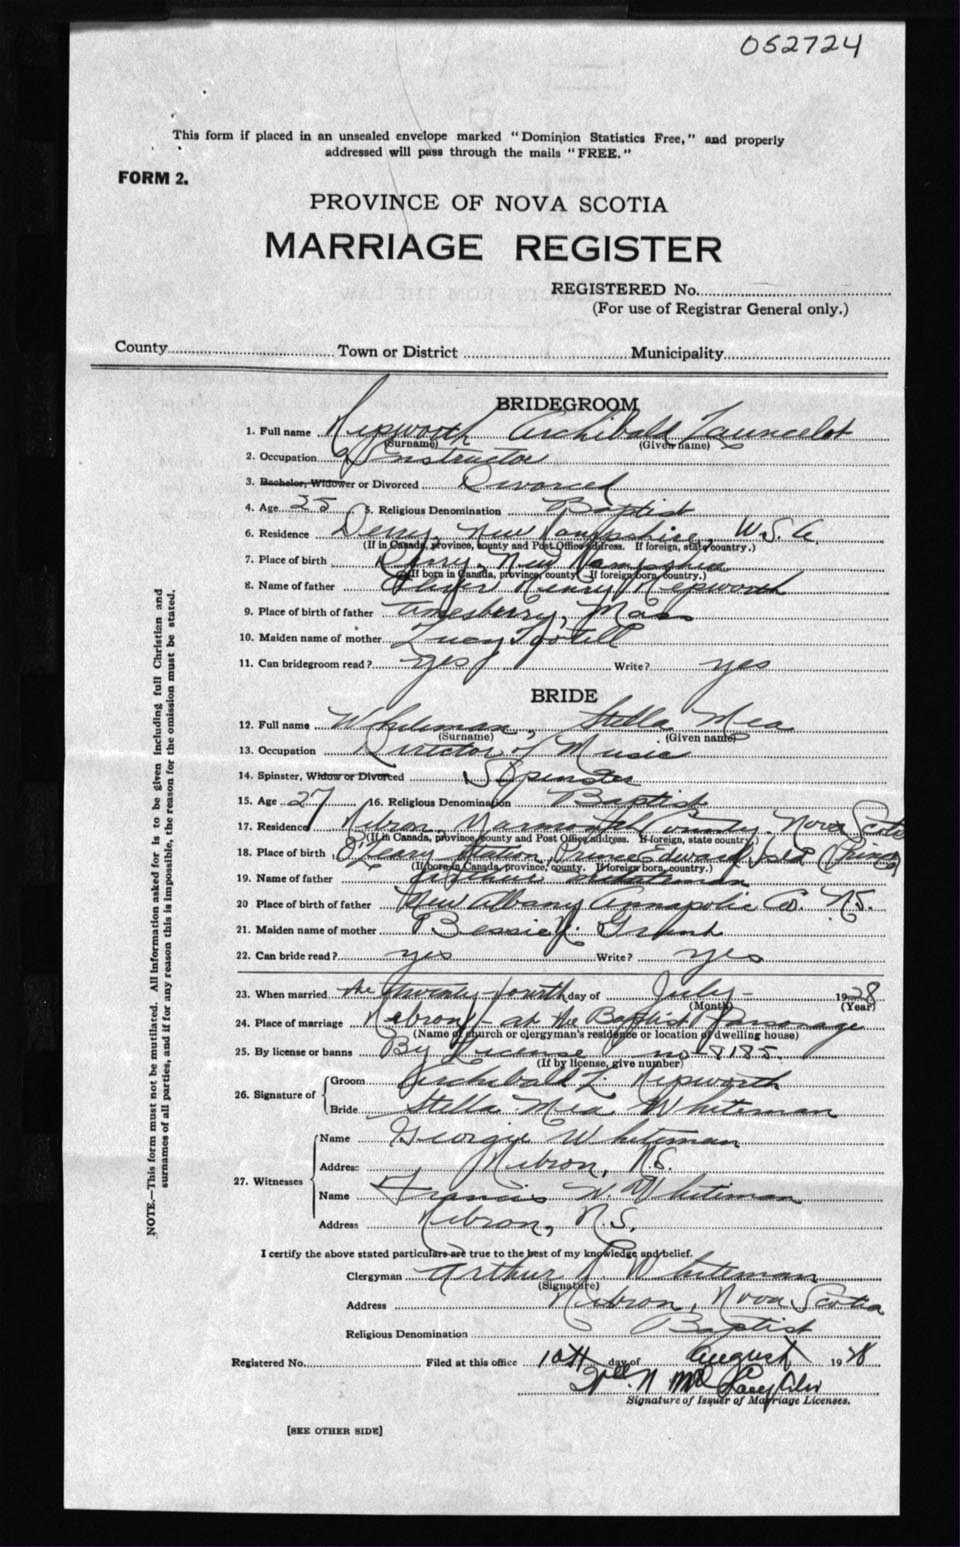 052724
This form if placed in an unsealed envelope marked "Dominion Statistics Free," and properly
addressed will pass through the mails "FREE."
FORM 2.
PROVINCE OF NOVA SCOTIA
MARRIAGE REGISTER
REGISTERED No.
(For use of Registrar General only.)
County Town or District Municipality
BRIDEGROOM
1. Full name Hepworth Archibald Launcelot
(Surname) (Given name)
2. Occupation Instructor
3. Bachelor, Widower or Divorced Divorced
4. Age 25 5. Religious Denomination Baptist
6. Residence Derry, New Hampshire, U.S.A.
(If in Canada, province, county and Post Office address. If foreign, state country.)
7. Place of birth Derry, New Hampshire
(If born in Canada, province, county. If foreign born, country.)
8. Name of father Henry Hepworth
9. Place of birth of father Amesberry, Mass
10. Maiden name of mother Lucy
11. Can bridegroom read? yes Write? yes
BRIDE
12. Full name Whiteman, Stella Mea
(Surname) (Given name)
13. Occupation Director of Music
14. Spinster, Widow or Divorced Spinster
15. Age 27 16. Religious Denomination Baptist
17. Residence Hebron, Yarmouth County. Nova Scotia
(If in Canada, province, county and Post Office address. If foreign, state country.)
18. Place of birth O'Leary Station, Prince Edward Isld (Prince)
(If born in Canada, province, county. If foreign born, country.)
19. Name of father Arthur Whiteman
20 Place of birth of father New Albany Annapolis Co. N.S.
21. Maiden name of mother Bessie
22. Can bride read? yes Write? yes
23. When married the twenty-fourth day of July - 1928
(Month) (Year)
24. Place of marriage Hebron - at the Baptist Parsonage
(Name of church or clergyman's residence or location of dwelling house)
25. By license or banns By License no - 8185.
(If by license, give number)
26. Signature of
Groom Archibald L. Hepworth
Bride Stella Mea Whiteman
27. Witnesses
Name Georgie Whiteman
Address Hebron, N.S.
Name Francis W. Whiteman
Address Hebron, N.S.
I certify the above stated particulars are true to the best of my knowledge and belief.
Clergyman Arthur Whiteman
(Signature)
Address Hebron, Nova Scotia
Religious Denomination Baptist
Registered No. Filed at this office 10th day of August 1928
Signature of Issuer of Marriage Licenses.
[SEE OTHER SIDE]
NOTE.—This form must not be mutilated. All information asked for is to be given including full Christian and
surnames of all parties, and if for any reason this is impossible, the reason for the omission must be stated.